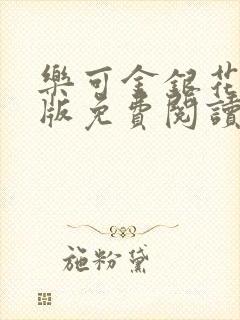 樂可金銀花
版免費閱讀
施粉黛